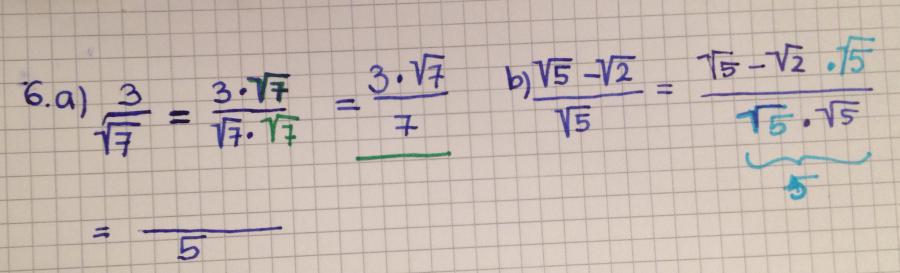 6. a) 3/√7 = 3·√7/√7·√7 = 3·√7/7 b) √5-√2/√5 = √5-√2·√5/√5·√5
5
= /5